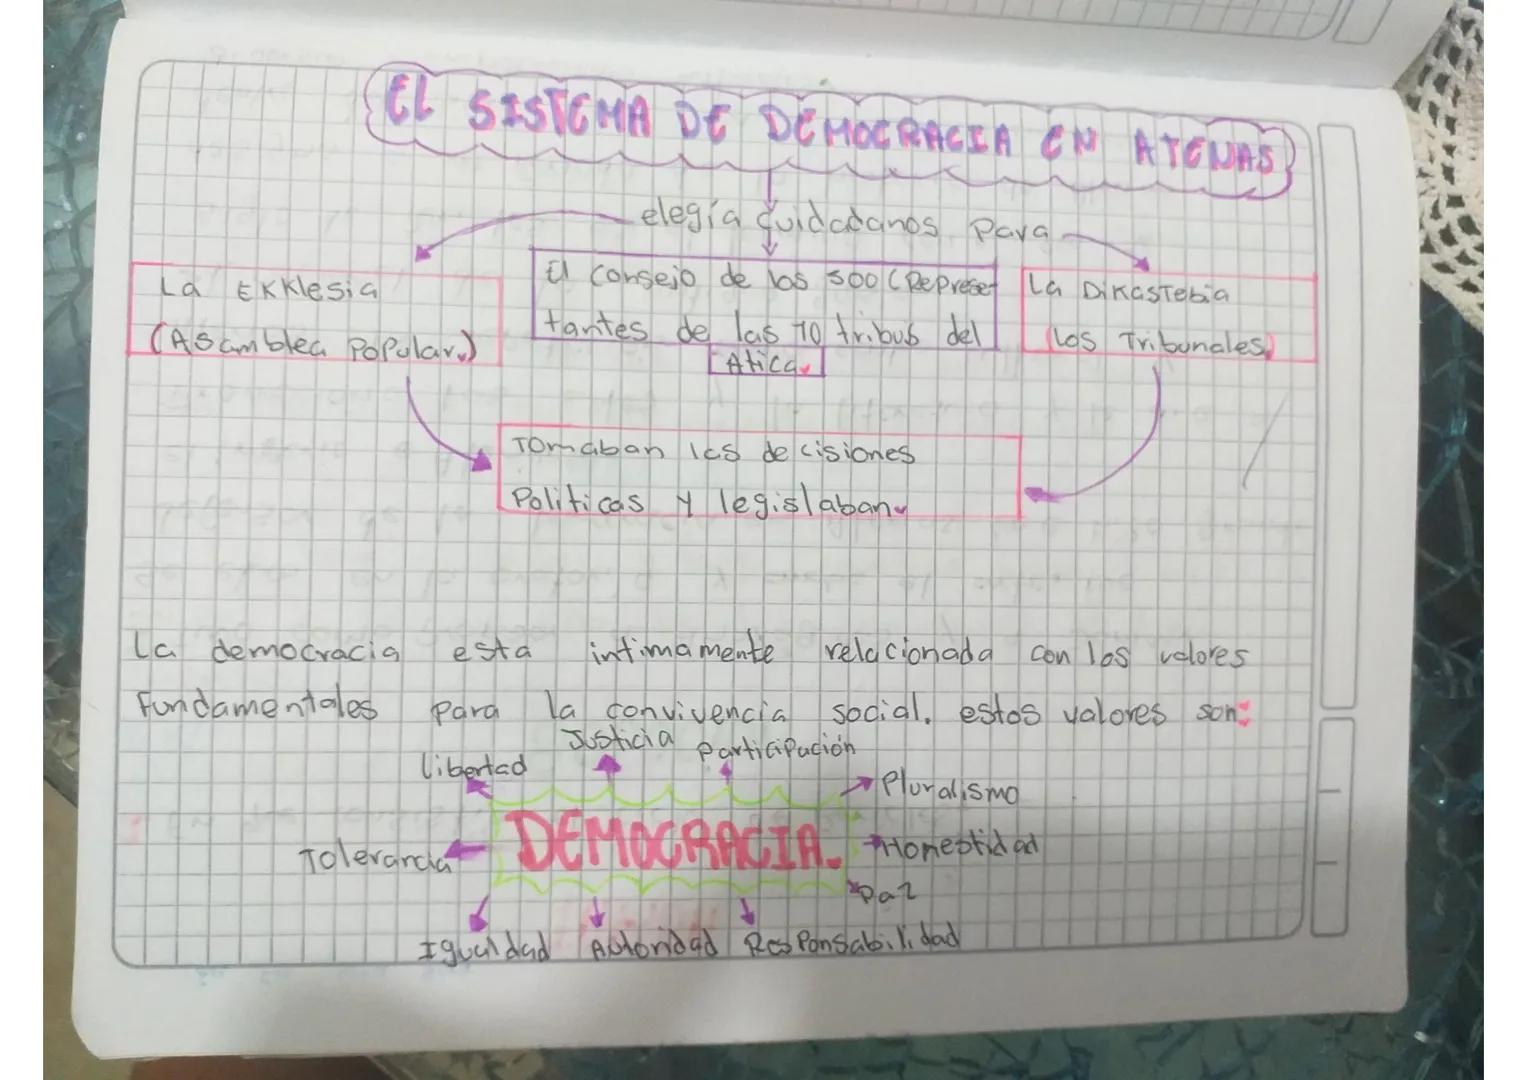 EL SISTEMA DE DEMOCRACIA EN ATENAS
elegía Cuidadanos Para
La EKKlesia
(Asamblea Popular.)
El Consejo de los 500 (Represet
tantes de las 10 tribus del
Atica.
La DiKasTebia
(Los Tribunales)
Tomaban las decisiones
Politicas y legislaban.
La democracia esta intimamente relacionada con los valores
Fundamentales para la convivencia social. estos valores son:
Justicia
Participación
libertad
Pluralismo
DEMOCRACIA.
Honestidad
Tolerancia
Paz
Igualdad
Autoridad
Responsabilidad